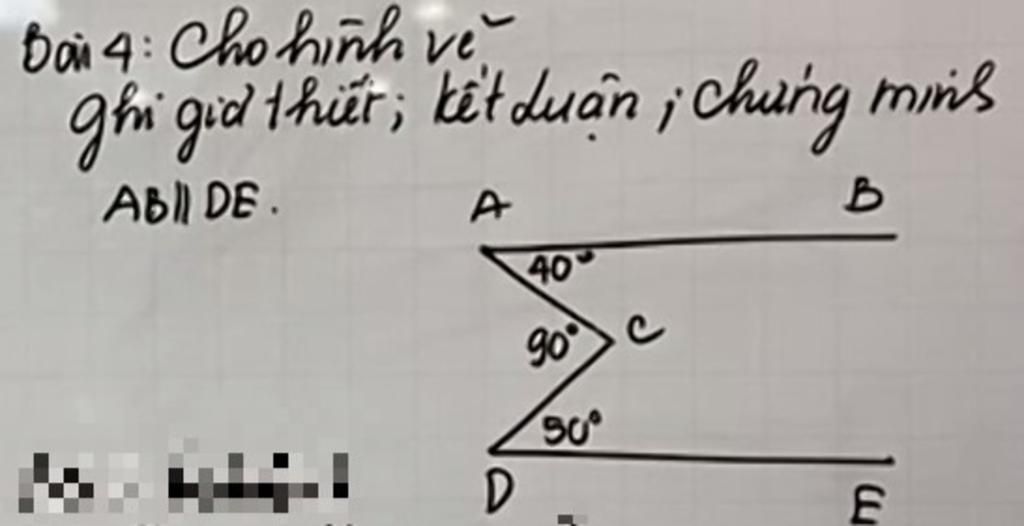 Bài 4: Cho hình vẽ
ghi giả thiết; kết luận; chứng minh
AB // DE.
A
B
40°
C
90°
50°
D
E